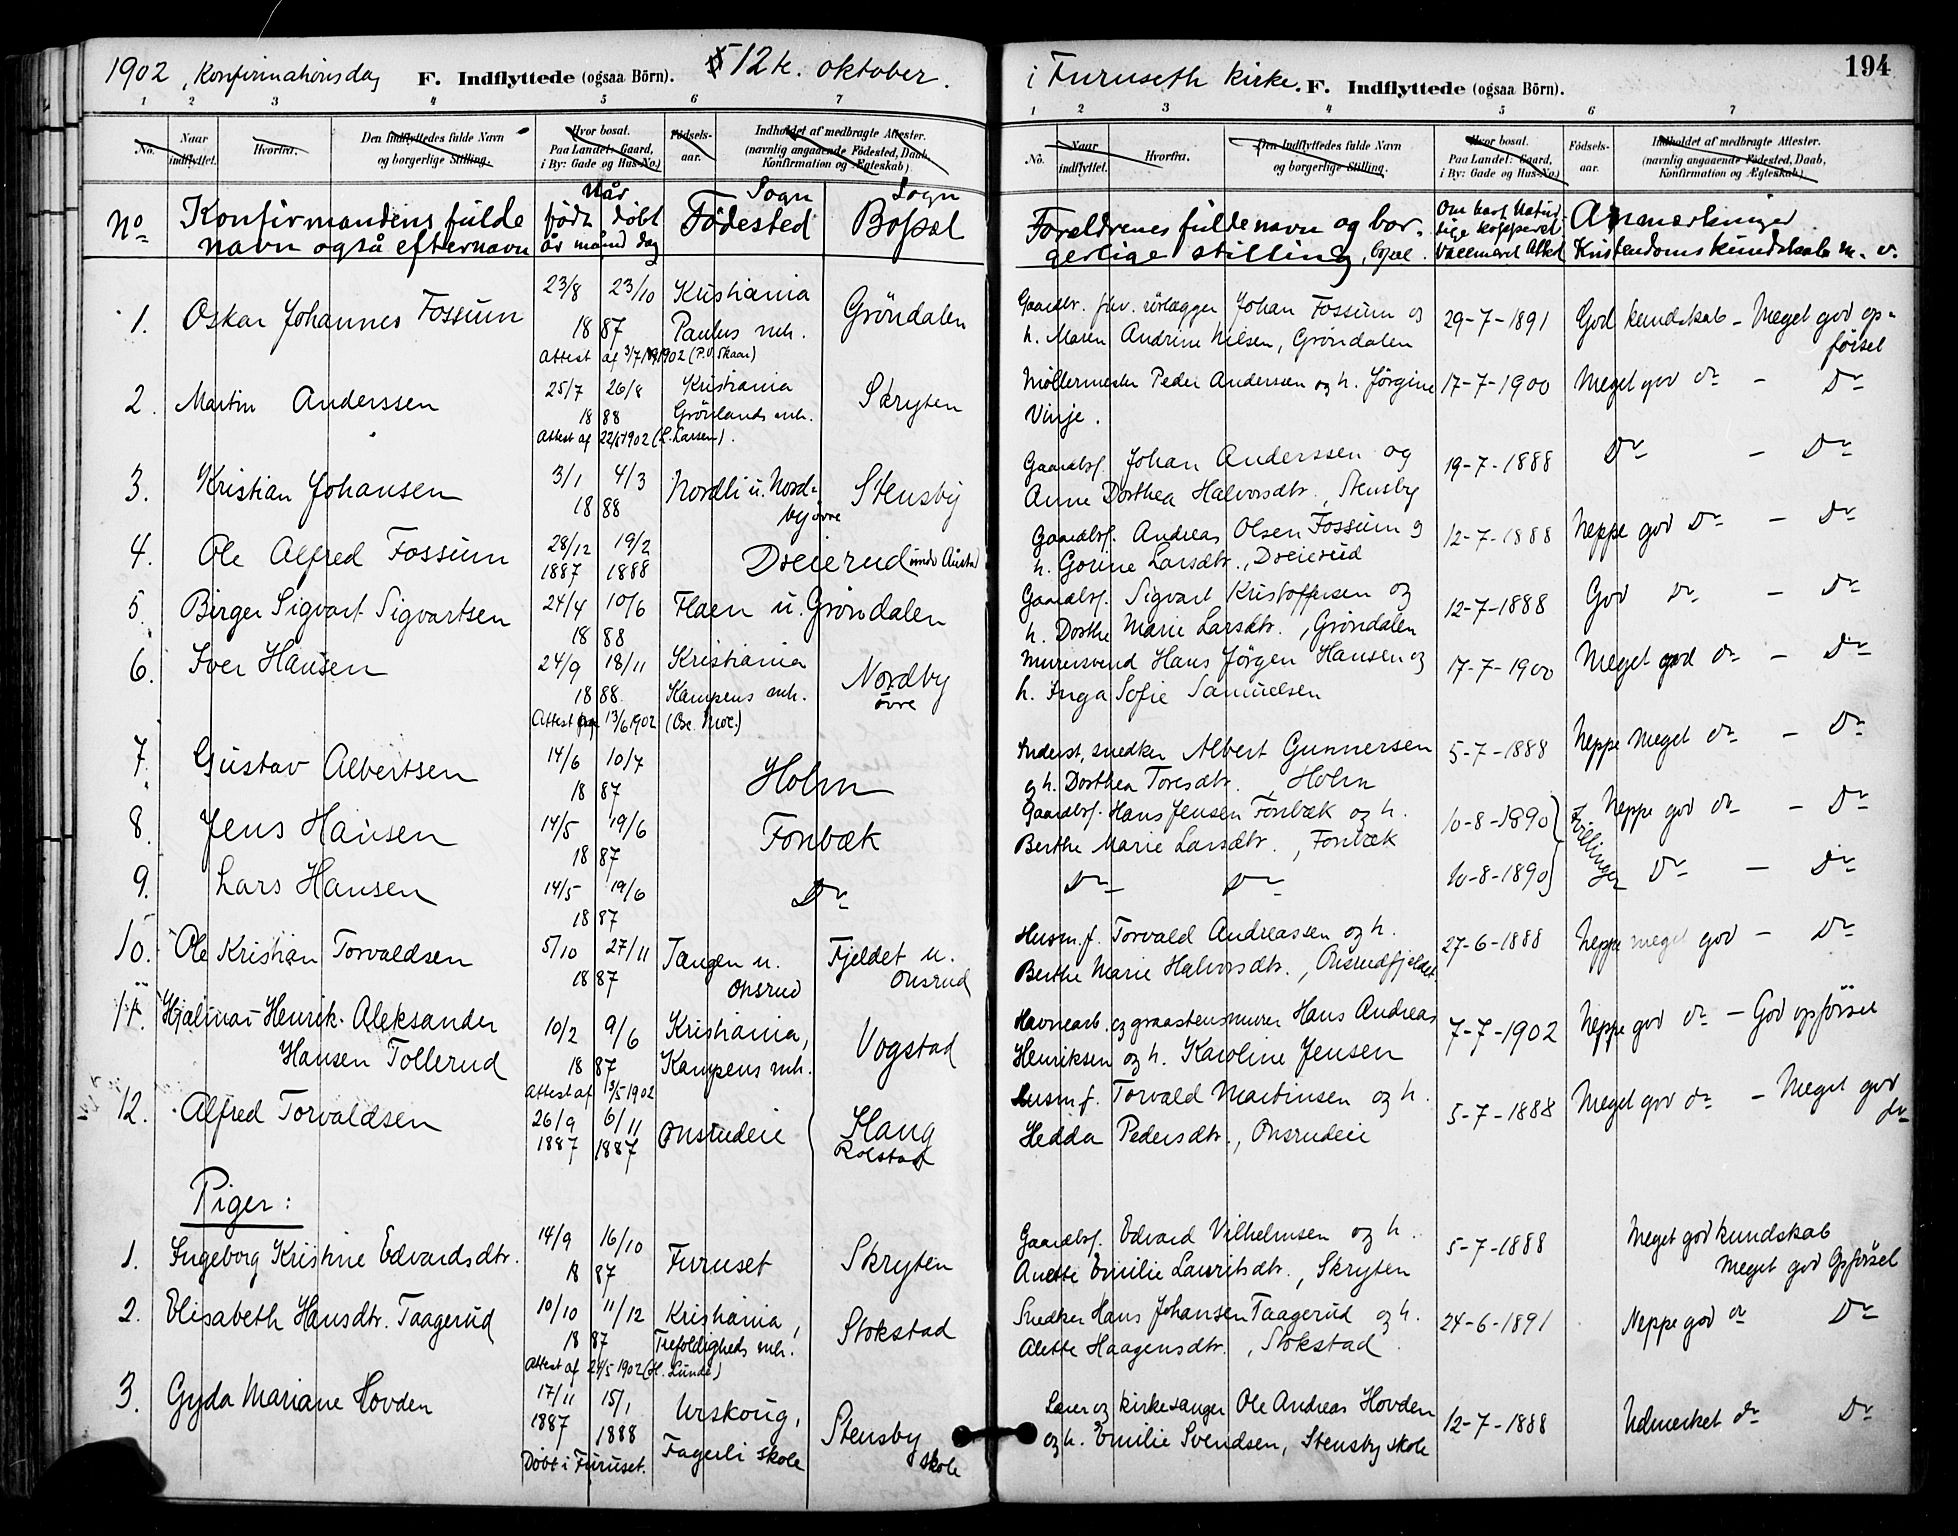 1902, Konfirmationsdag F. Indflyttede (ogsaa Börn). 12te oktober.
1 2 3 4 5 6 7
No. Naar indflyttet. Hvorfra. Den Indflyttedes fulde Navn og borgerlige Stilling. Hvor bosat. Paa Landet: Gaard, i By: Gade og Hus-No.) Födsels-aar. Indholdet af medbragte Attester. (navnlig angaaende Födested, Daab, Konfirmation og Ægteskab).
No Konfirmandens fulde navn også efternavn Når født døbt år månd dag Sogn Födested Sogn Bopæl
1. Oskar Johannes Fossum 23/8 23/10 1887 Kristiania Paulus mh. Gröndalen
Attest af 3/7 1902 (P.O. Skaar)
2. Martin Anderssen 25/7 26/8 1888 Kristiania Grönlands mh. Skryten
Attest af 22/5 1902 (L. Larsen).
3. Kristian Johansen 3/1 4/3 1888 Nordli u. Nordby øvre Stensby
4. Ole Alfred Fossum 28/12 1887 19/2 1888 Dreierud under Austad
5. Birger Sigvart Sigvartsen 24/4 10/6 1888 Flaen u. Grøndalen
6. Iver Hansen 24/9 18/11 1888. Kristiania Kampens mh. Nordby øvre
Attest 13/6 1902 (Ose. Moe.)
7. Gustav Albertsen 14/6 10/7 1887 Holm
8. Jens Hansen 14/5 19/6 1887 Fonbæk
9. Lars Hansen 14/5 19/6 1887 Do
10. Ole Kristian Torvaldsen 5/10 27/11 1887 Tangen u. Onsrud Fjeldet u. Onsrud
11. Hjalmar Henrik Aleksander Hansen Tollerud 10/2 9/6 1887 Kristiania, Kampens mh. Vogstad
Attest af 3/5 1902
12. Alfred Torvaldsen 26/9 1887 6/11 1887 Onsrudeie Haug Rolstad
Piger:
1. Ingeborg Kristine Edvardsdtr. 14/9 16/10 1887 Furuset Skryten
2. Elisabeth Hansdtr. Taagerud 10/10 11/12 1887 Kristiania, Trefoldigheds mh. Stokstad
Attest af 24/5 1902 (H. Lunde)
3. Gyda Mariane Hovden 17/11 1887 15/1 1888 Urskoug, Fagerli skole Stensby skole
Döbt i Furuset.
i Furuseth kirke. F. Indflyttede (ogsaa Börn). 194
1 2 3 4 5 6 7
No. Naar indflyttet. Hvorfra. Den Indflyttedes fulde Navn og borgerlige Stilling. Hvor bosat. Paa Landet: Gaard, i By: Gade og Hus-No.) Födsels-aar. Indholdet af medbragte Attester. (navnlig angaaende Födested, Daab, Konfirmation og Ægteskab)
Forældrenes fulde navn og borgerlige stilling, bopæl. Om havt Naturlige kopper el. Vaccineret Attest Anmærkninger Kristendomskundskab m. v.
Gaardbr. fhv. rörlægger Johan Fossum og 29-7-1891 God kundskab - Meget god opførsel
h. Maren Andrine Nilsen, Grøndalen
Møllermester Peder Anderssen og h. Jørgine 17-7-1900 Meget god do - Do
Vinje.
Gaardbf. Johan Anderssen og 19-7-1888 Do - Do
Anne Dorthea Halvorsdtr., Stensby
Gaardbf. Andreas Olsen Fossum og 12-7-1888 Neppe god Do - Do
h. Gorine Larsdtr., Dreierud
Gaardbf. Sigvart Kristoffersen og 12-7-1888 God Do - Do
h. Dorthe Marie Larsdtr., Grøndalen
Murersvend Hans Jørgen Hansen og 17-7-1900 Meget god do - Do
h. Inga Sofie Samuelsen
Inderst, snedker Albert Gunnersen 5-7-1888 Neppe Meget do - Do
og h. Dorthea Toresdtr., Holm
Gaardbf. Hans Jensen Fonbæk og h. 10-8-1890 Tvillinger Neppe god do - Do
Berthe Marie Larsdtr., Fonbæk
Do Do 10-8-1890 Do - Do
Husm.f. Torvald Andreassen og h. 27-6-1888 Neppe meget god - Do
Berthe Marie Halvorsdtr., Onsrudfjeldet
Havnearb. og graastensmurer Hans Andreas 7-7-1902 Neppe god do - God opførsel
Henriksen og h. Karoline Jensen
Husm.f. Torvald Martinsen og h. 5-7-1888 Meget god do - Meget god do
Hedda Pedersdtr., Onsrudeie
Gaardbf. Edvard Vilhelmsen og h. 5-7-1888 Meget god kundskab
Anette Emilie Lauritsdtr., Skryten Meget god Opførsel
Snedker Hans Johansen Taagerud og h. 24-6-1891 Neppe god do Do
Alette Haagensdtr., Stokstad
Lærer og kirkesanger Ole Andreas Hovden 12-7-1888 Udmerket do Do
og h. Emilie Svendsen, Stensby skole